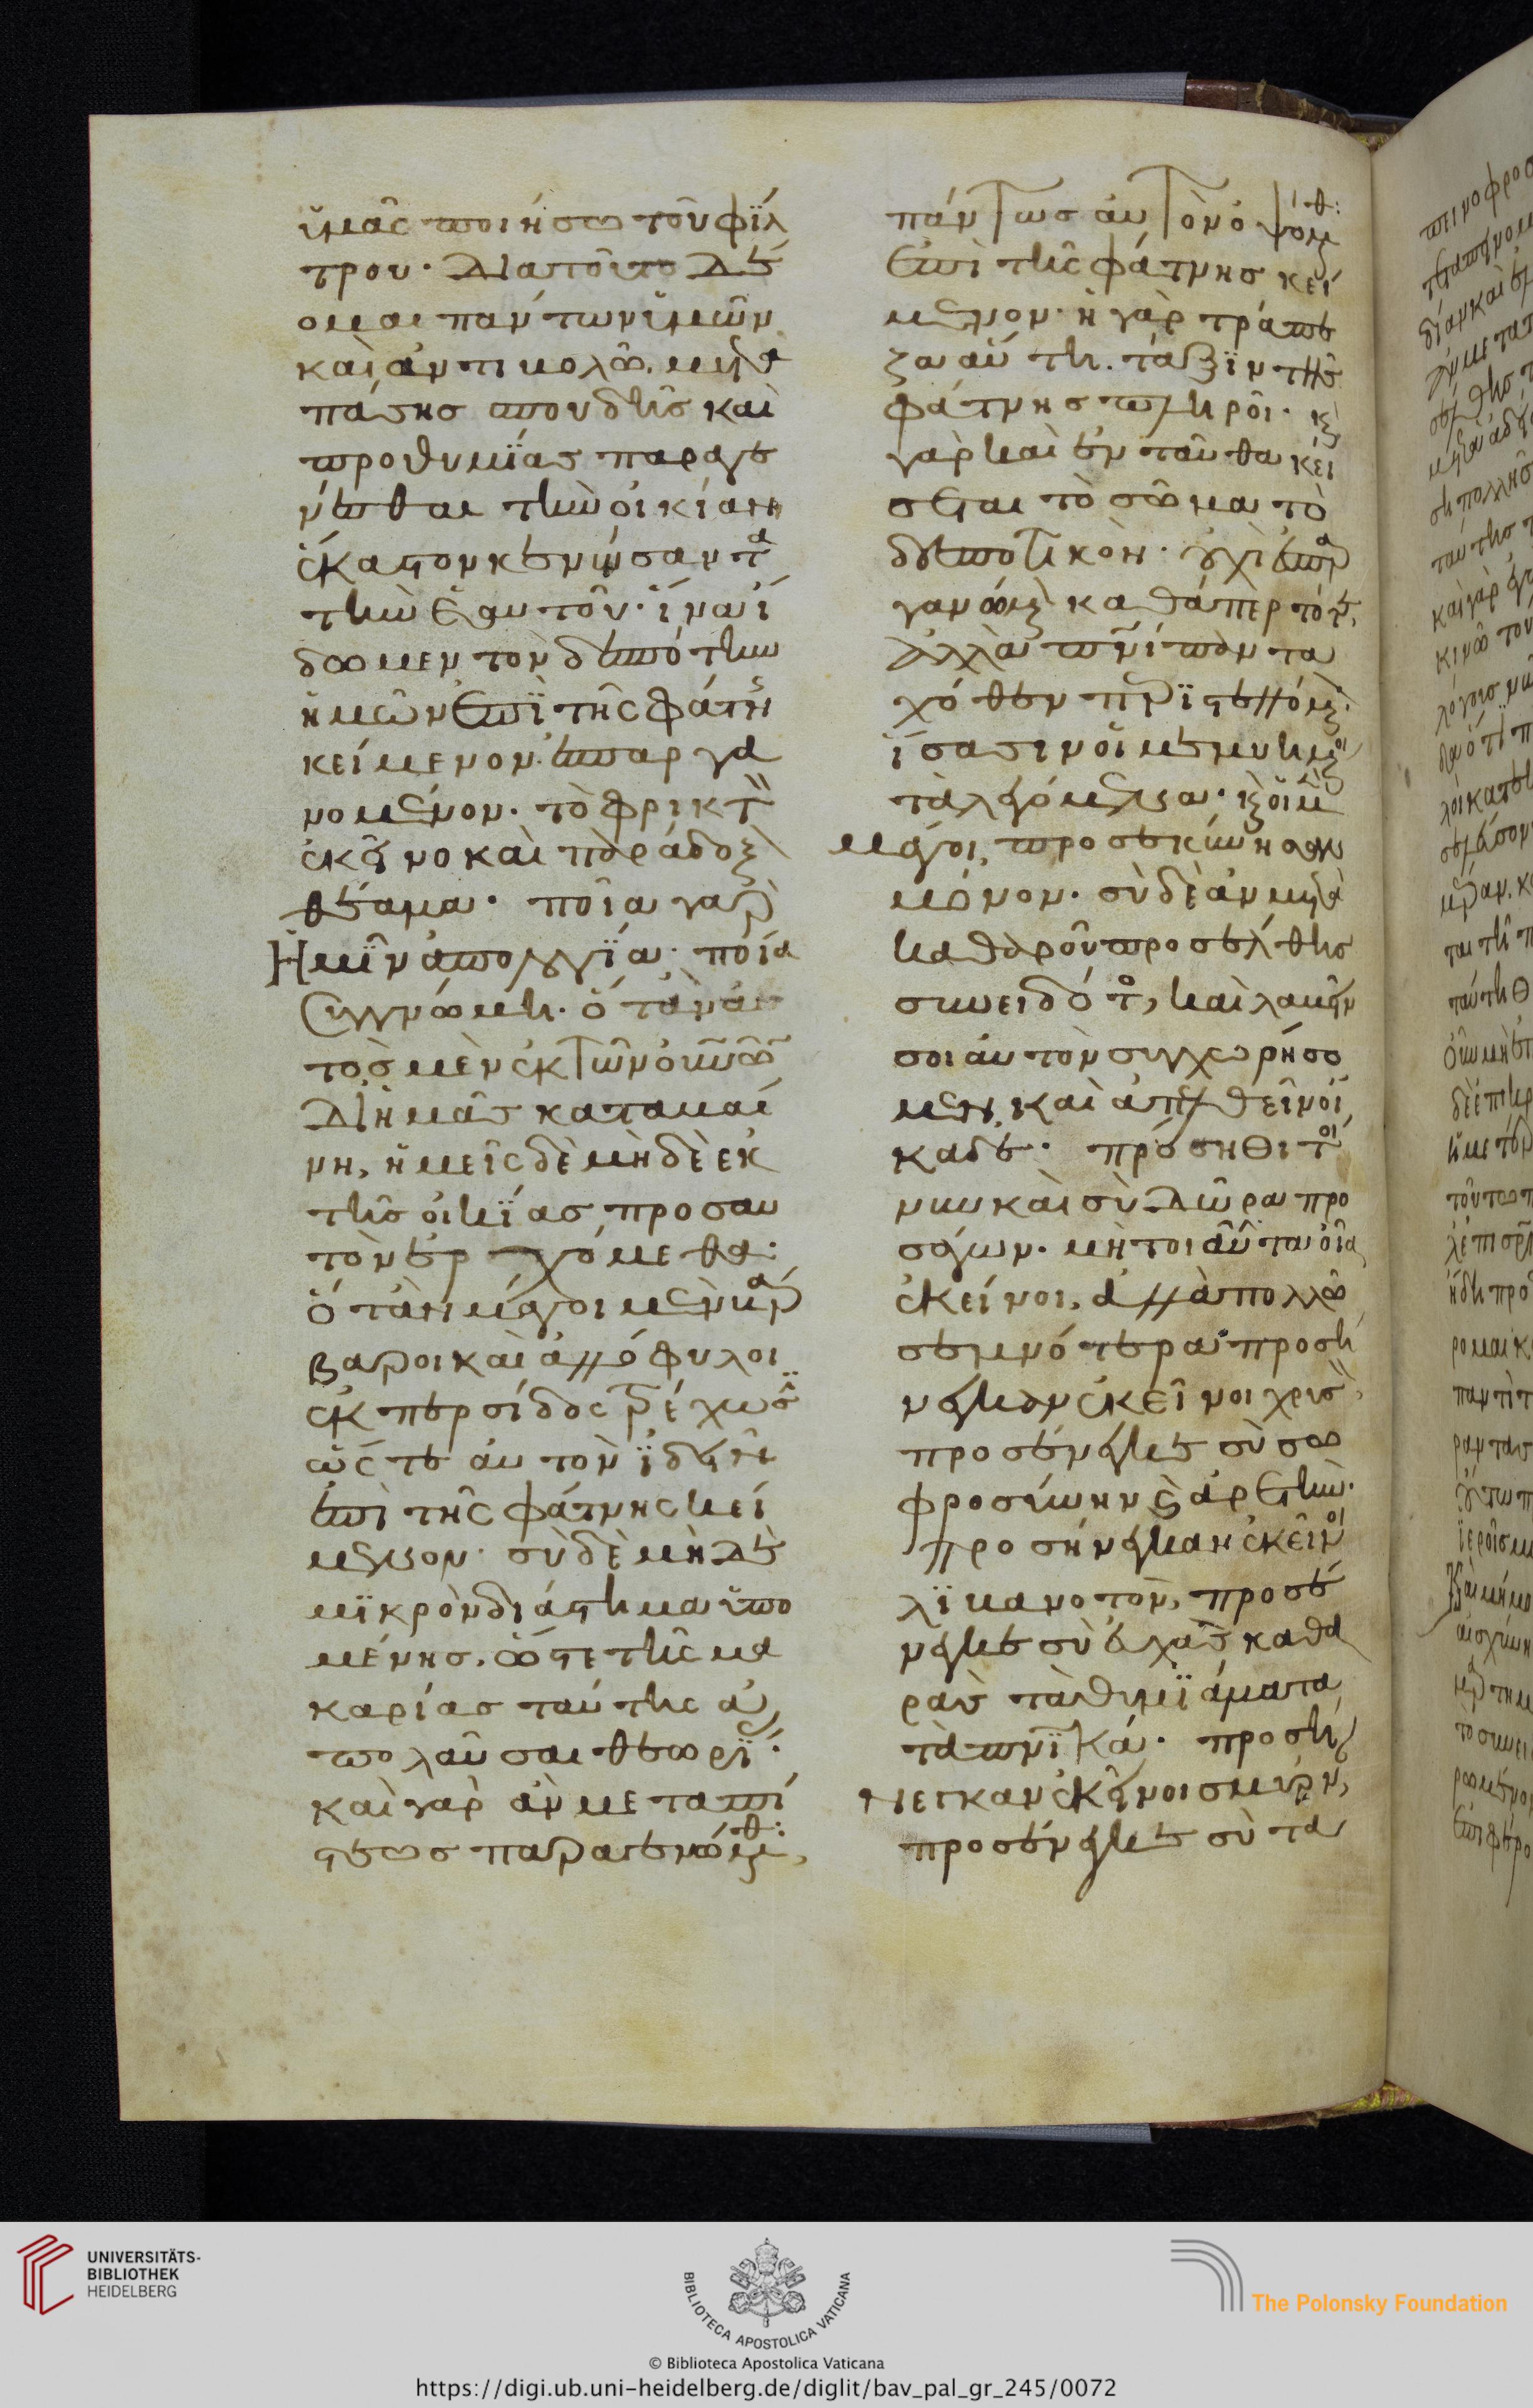 ὑμᾶς ποιήσω τοῦ φίλ
τρου· Διατοῦτο δέ
ομαι πάντων ὑμῶν
καὶ ἀντιβολῶ. μετὰ
πάσης σπουδῆς καὶ
προθυμίας παραγε
νέσθαι τὴν οἰκίαν
ἕκαστον κενώσαντα
τὴν ἑαυτοῦ· ἵνα ἴ
δωμεν τὸν δεσπότην
ἡμῶν ἐπὶ τῆς φάτνης
κείμενον· ἐσπαργα
νομένον· τὸ φρικτὸν
ἐκεῖνο καὶ παράδοξον
θέαμα· ποῖα γὰρ
Ἡμῖν ἀπολογία· ποία
συγγνώμη· ὅτ' ἂν αὐ
τὸς μὲν ἐκ τῶν οὐνῶν
Δι' ἡμᾶς καταβαί
νη, ἡμεῖς δὲ μὴ δὲ ἐκ
τῆς οἰκίας προσ αυ
τὸν ἐρχόμεθα:
ὅτ' ἂν μάγοι μὲν βάρ
βαροι καὶ ἀλλόφυλοι
ἐκ περσίδος τρέχωσιν
ὥστε αὐτὸν ἰδεῖν
ἐπὶ τῆς φάτνης κεί
μενον· σὺ δὲ μὴ δὲ
μικρὸν διάστημα ὑπο
μένης. ὥστε τῆς μα
καρίας ταύτης ἀ
πολαῦσαι θεωρίας·
καὶ γὰρ ἂν μετα πί
στεως παραγενώμεθα,
πάντως αὐτὸν ὀψόμεθα:
ἐπὶ τῆς φάτνης κεί
μενον· ἡ γὰρ τράπε
ζα αὕτη. τάξιν τῆς
φάτνης πληροῖ· καὶ
γὰρ καὶ ἐνταῦθα κεί
σεται τὸ σῶμα τὸ
δεσποτικὸν· οὐχὶ ἐσπαρ
γανωμένον καθάπερ τότε,
ἀλλὰ πνι πανατα
χόθεν περιστελλόμενον·
ἴσασιν οἱ μεμυημένοι
τὰ λεγόμενα· καὶ οἱ μὲν
μάγοι, προσεκύνησαν
μόνον· σὺ δὲ ἂν μετὰ
καθαροῦ προσέλθης
συνειδότος, καὶ λαβεῖν
σοι αυτὸν συγχωρήσο
μεν, καὶ ἀπελθεῖν οἴ
καδε· πρόσηθι τοί
νυν καὶ σὺ δῶρα προ
σάγων· μὴ τοιαῦτα οἷα
ἐκείνοι, ἀλλὰ πολλῶ
σεμνότερα· προσή
νεγκαν ἐκεῖνοι χρυσὸν,
προσένεγκε σὺ σω
φροσύνην καὶ ἀρετὴν·
προσήνεγκαν ἐκεῖνοι
λίβανοτον, προσέ
νεγκε σὺ εὐχὰς καθα
ρὰς τὰ θυμιάματα
τὰ πνικά· προσή
νεγκαν ἐκεῖνοι σμύρναν,
προσένεγκε σὺ τα
UNIVERSITÄTS-
BIBLIOTHEK
HEIDELBERG
BIBLIOTECA APOSTOLICA VATICANA
The Polonsky Foundation
© Biblioteca Apostolica Vaticana
https://digi.ub.uni-heidelberg.de/diglit/bav_pal_gr_245/0072